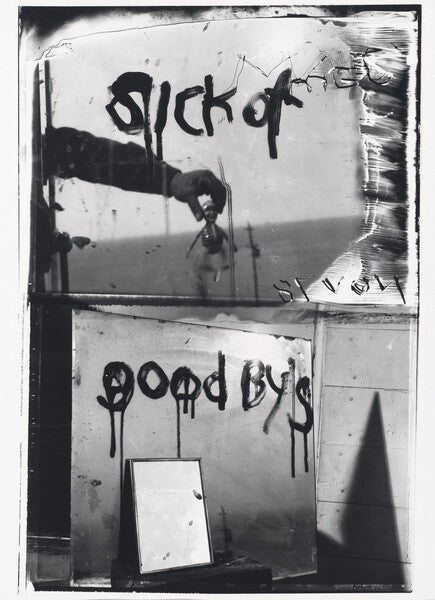 SICK of
goodBy's